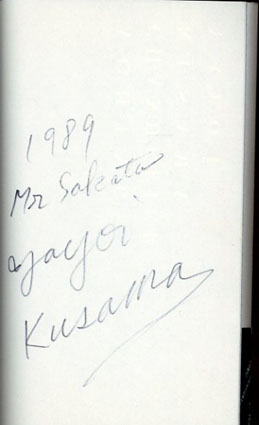 1989
Mr Sakata
yayoi
Kusama